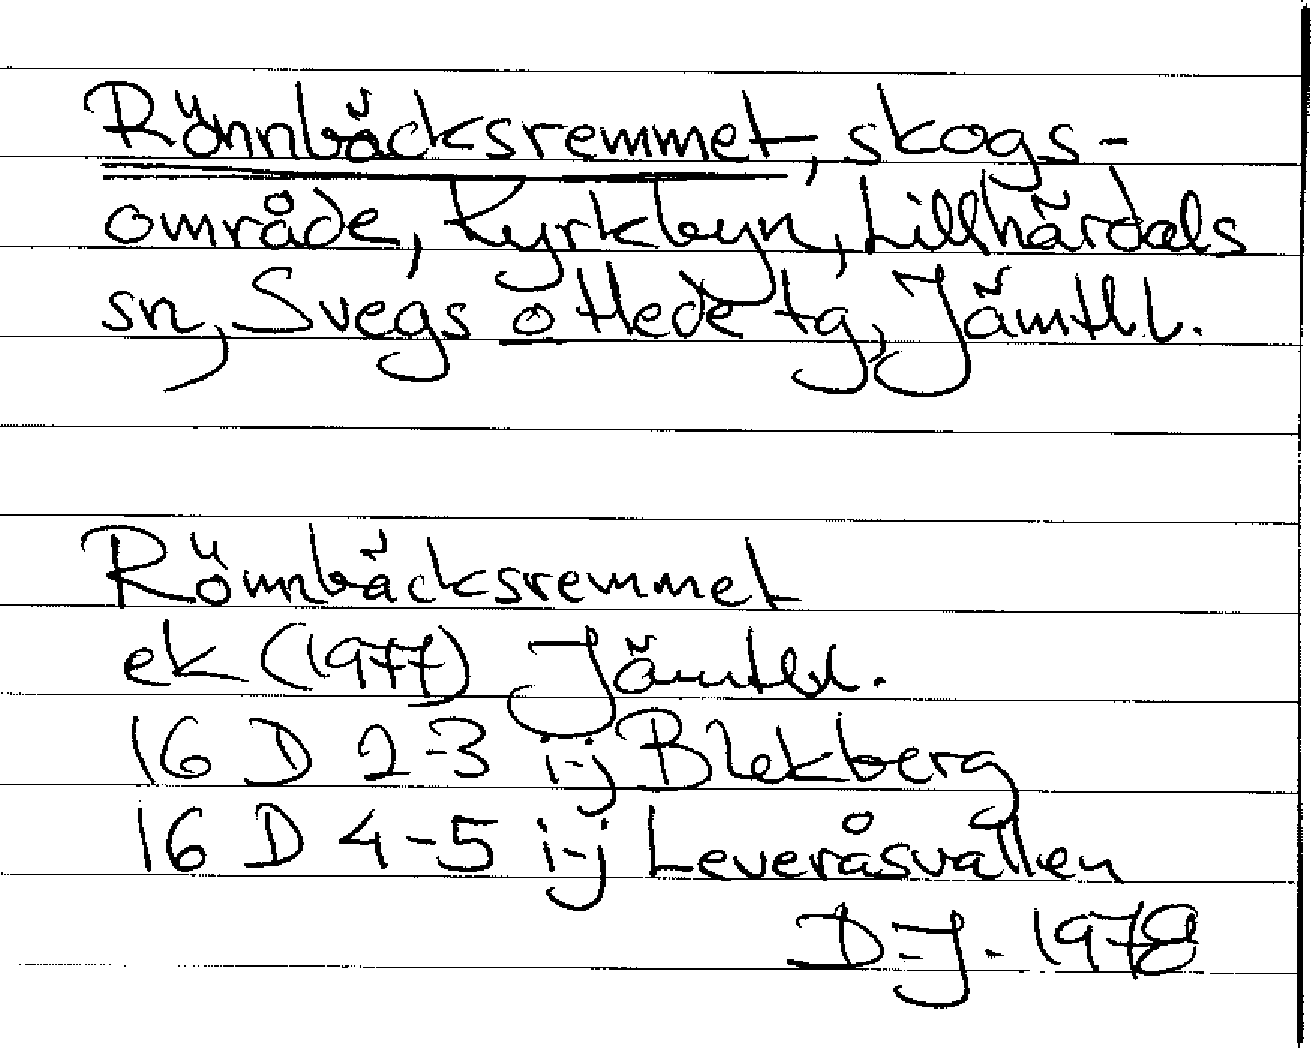 Rönnbäcksremmet, skogs-
område, Kyrkbyn, Lillhärdals
sn, Svegs o Hede tg, Jämtl l.
Rönnbäcksremmet
ek (1977) Jämtl l.
16 D 2-3 i-j Blekberg
16 D 4-5 i-j Leveråsvallen
D-J- 1978